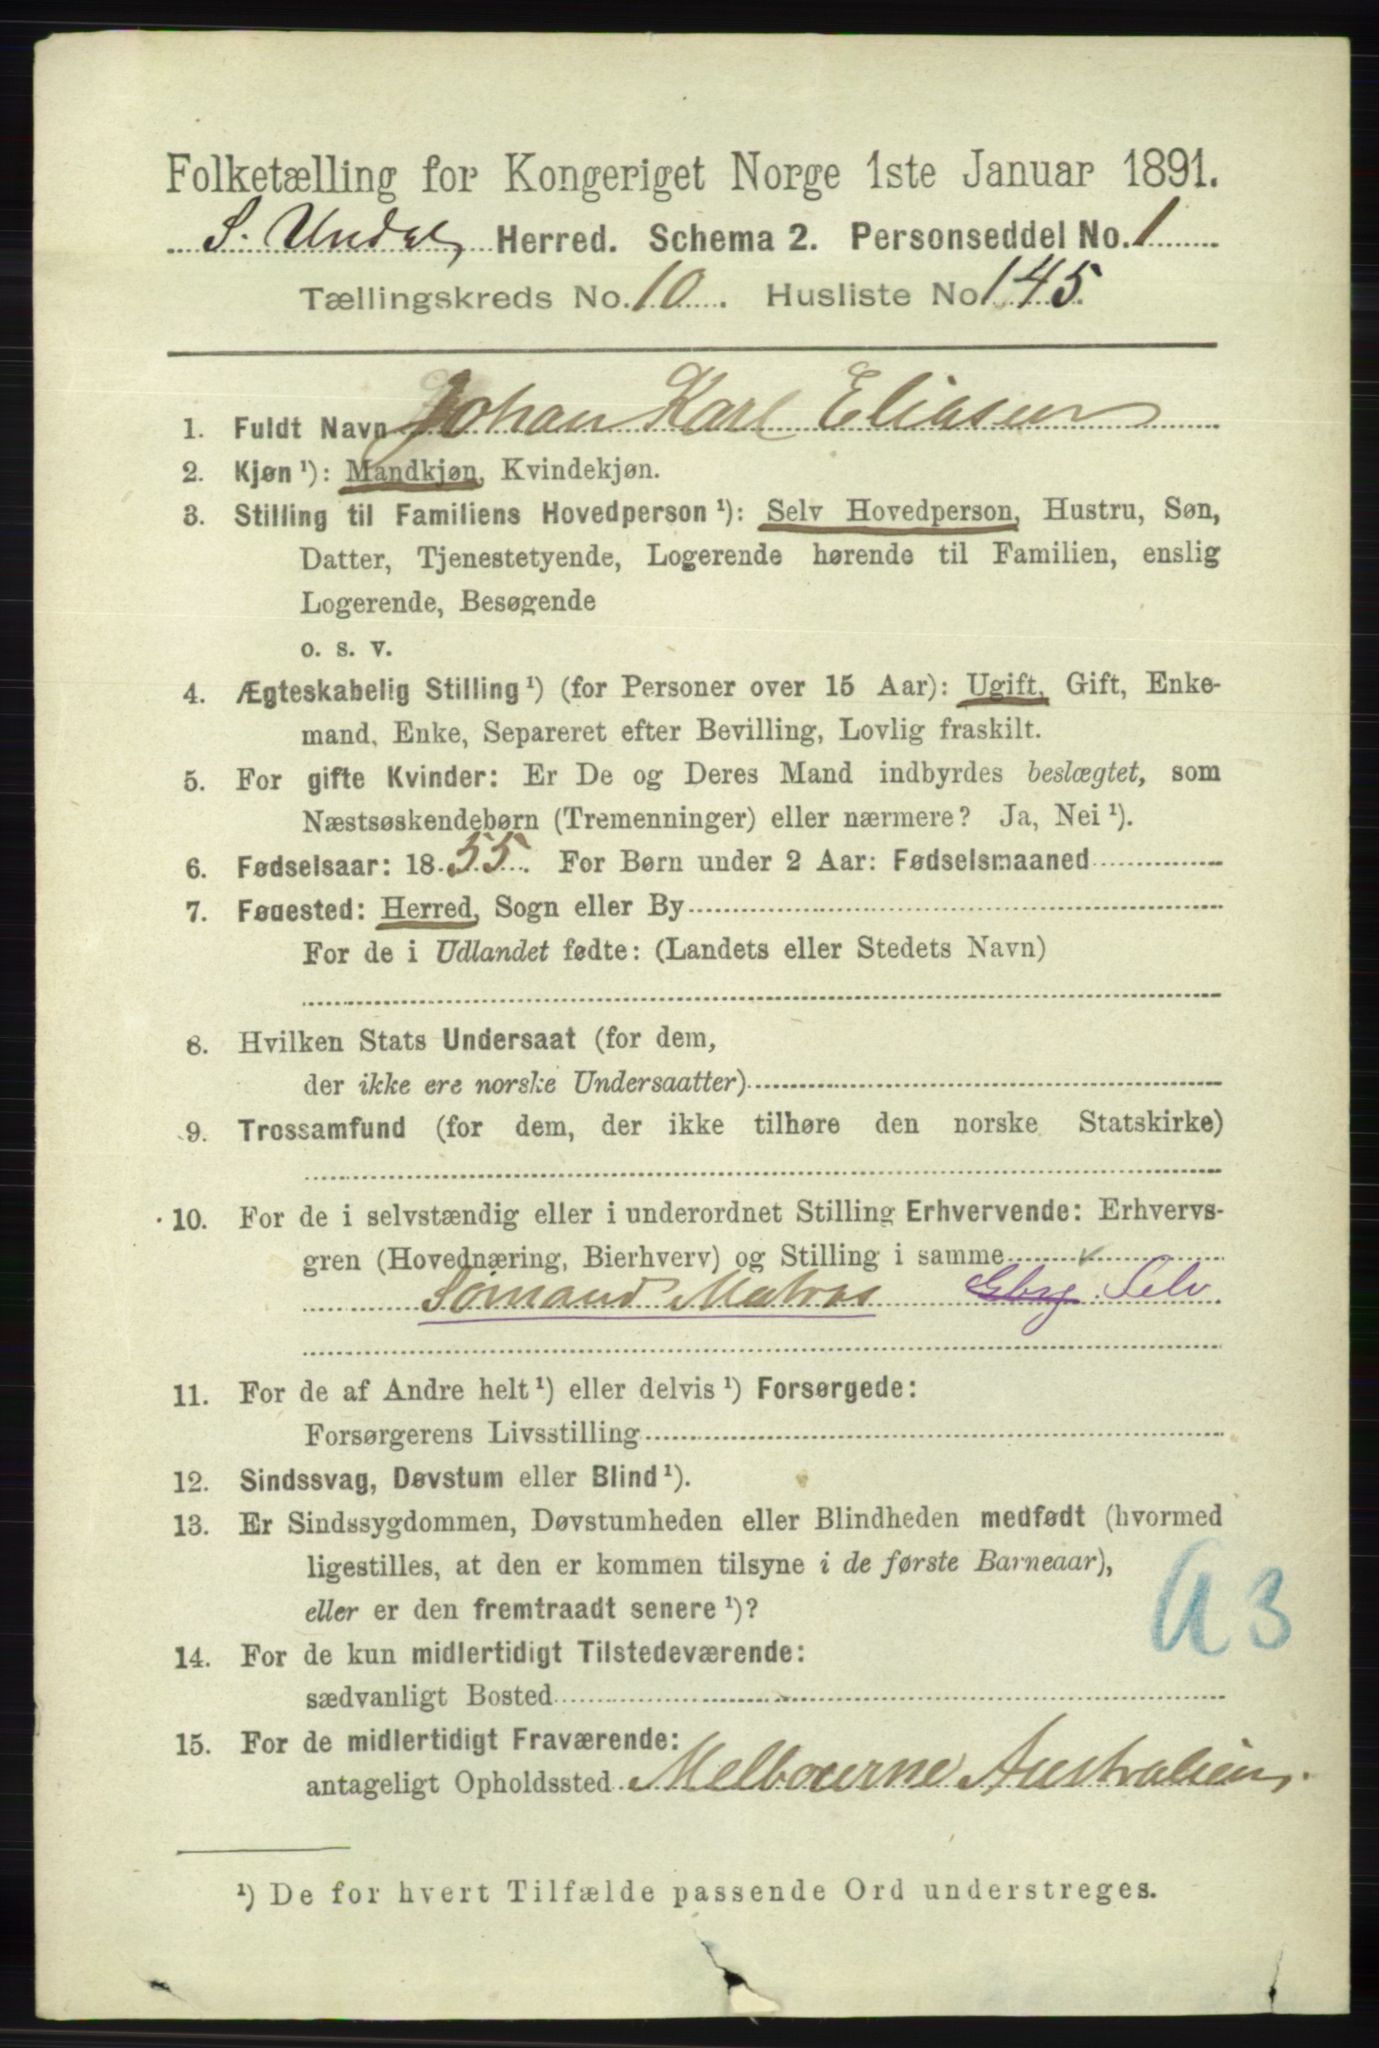 Folketælling for Kongeriget Norge 1ste Januar 1891.
S. Undal Herred. Schema 2. Personseddel No. 1
Tællingskreds No. 10. Husliste No 145.
1. Fuldt Navn Johan Karl Eliasen
2. Kjøn ¹): Mandkjøn, Kvindekjøn.
3. Stilling til Familiens Hovedperson ¹): Selv Hovedperson, Hustru, Søn,
Datter, Tjenestetyende, Logerende hørende til Familien, enslig
Logerende, Besøgende
o. s. v.
4. Ægteskabelig Stilling ¹) (for Personer over 15 Aar): Ugift, Gift, Enke-
mand, Enke, Separeret efter Bevilling, Lovlig fraskilt.
5. For gifte Kvinder: Er De og Deres Mand indbyrdes beslægtet, som
Næstsøskendebørn (Tremenninger) eller nærmere? Ja, Nei ¹).
6. Fødselsaar: 1855. For Børn under 2 Aar: Fødselsmaaned
7. Fødested: Herred, Sogn eller By
For de i Udlandet fødte: (Landets eller Stedets Navn)
8. Hvilken Stats Undersaat (for dem,
der ikke ere norske Undersaatter)
9. Trossamfund (for dem, der ikke tilhøre den norske Statskirke)
10. For de i selvstændig eller i underordnet Stilling Erhvervende: Erhvervs-
gren (Hovednæring, Bierhverv) og Stilling i samme
Sømand Matros Gbrg. Selv
11. For de af Andre helt ¹) eller delvis ¹) Forsørgede:
Forsørgerens Livsstilling
12. Sindssvag, Døvstum eller Blind ¹).
13. Er Sindssygdommen, Døvstumheden eller Blindheden medfødt (hvormed
ligestilles, at den er kommen tilsyne i de første Barneaar),
eller er den fremtraadt senere ¹)?
14. For de kun midlertidigt Tilstedeværende:
sædvanligt Bosted
15. For de midlertidigt Fraværende:
antageligt Opholdssted Melbourne Australien.
¹) De for hvert Tilfælde passende Ord understreges.